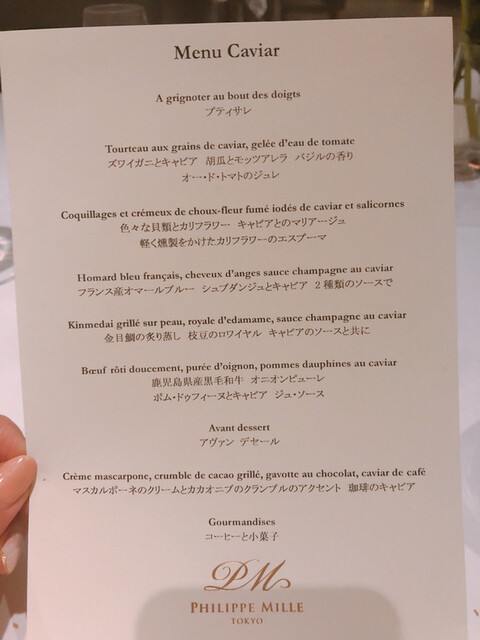 Menu Caviar
A grignoter au bout des doigts
プティサレ
Tourteau aux grains de caviar, gelée d'eau de tomate
ズワイガニとキャビア 胡瓜とモッツアレラ バジルの香り
オー・ド・トマトのジュレ
Coquillages et crémeux de choux-fleur fumé iodés de caviar et salicornes
色々な貝類とカリフラワー キャビアとのマリアージュ
軽く燻製をかけたカリフラワーのエスプーマ
Homard bleu français, cheveux d'anges sauce champagne au caviar
フランス産オマールブルー シュブダンジュとキャビア 2種類のソースで
Kinmedai grillé sur peau, royale d'edamame, sauce champagne au caviar
金目鯛の炙り蒸し 枝豆のロワイヤル キャビアのソースと共に
Bœuf rôti doucement, purée d'oignon, pommes dauphines au caviar
鹿児島県産黒毛和牛 オニオンピューレ
ポム・ドゥフィーヌとキャビア ジュ・ソース
Avant dessert
アヴァン デセール
Crème mascarpone, crumble de cacao grillé, gavotte au chocolat, caviar de café
マスカルポーネのクリームとカカオニブのクランブルのアクセント 珈琲のキャビア
Gourmandises
コーヒーと小菓子
PM
PHILIPPE MILLE
TOKYO